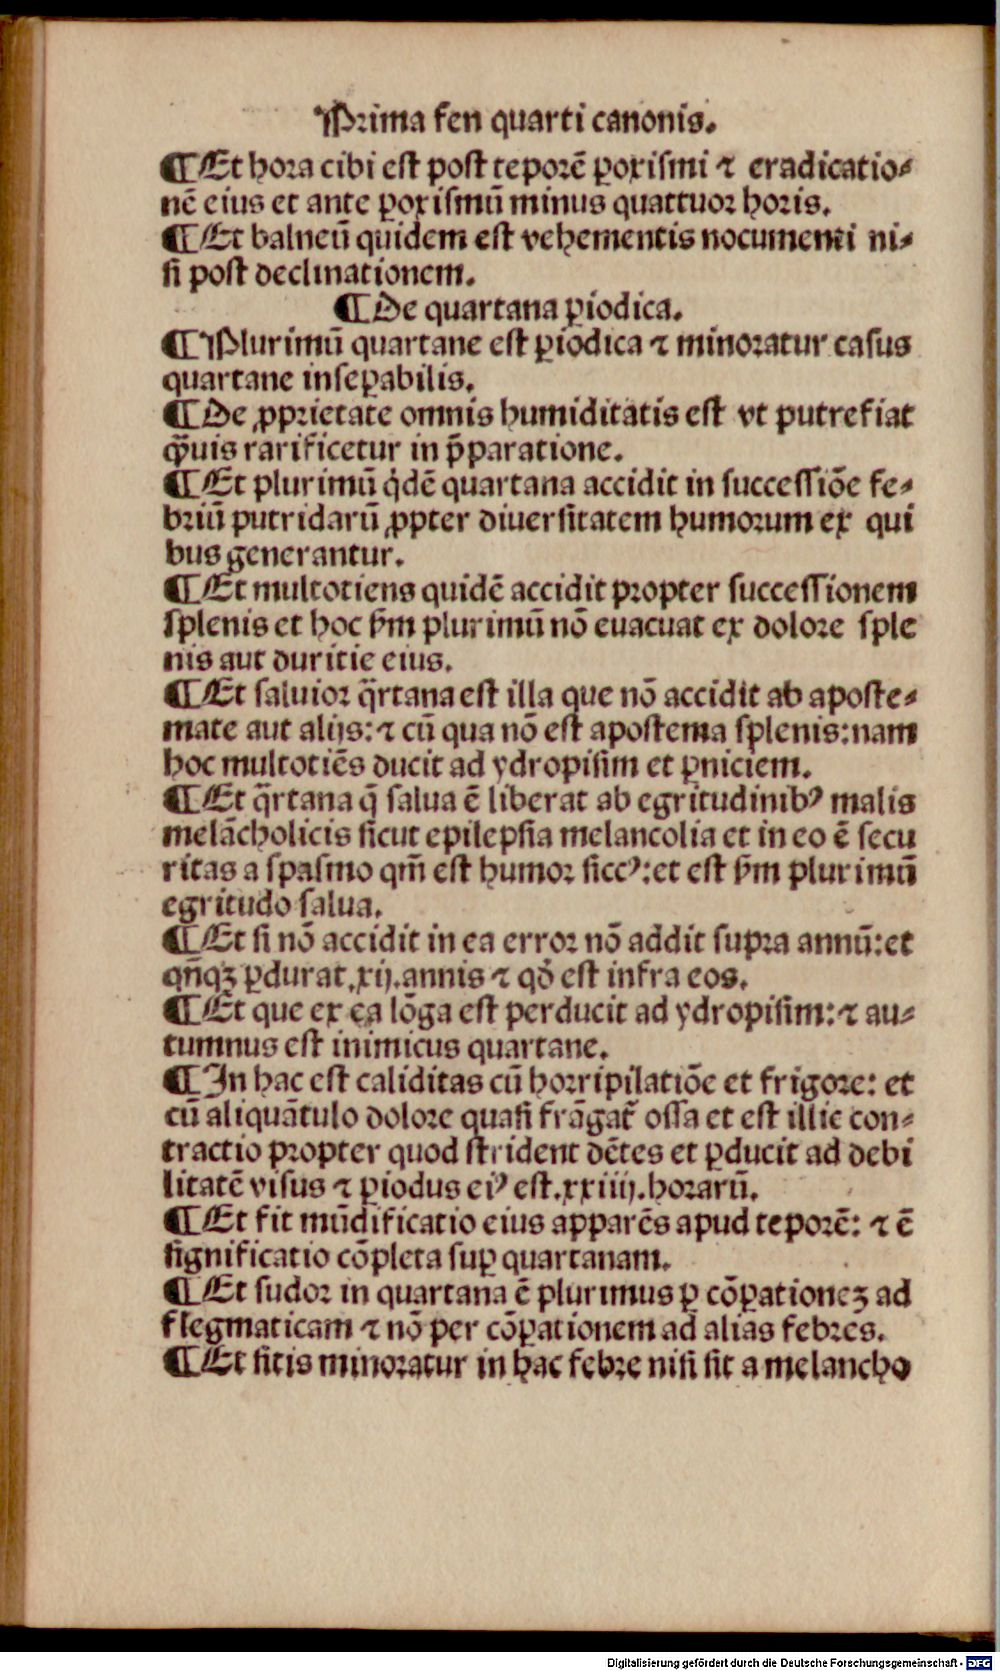 Prima fen quarti canonis.
¶Et hora cibi est post teporē ꝑoxismi ⁊ eradicatio⸗
nē eius et ante ꝑoxismū minus quattuor horis.
¶Et balneū quidem est vehementis nocumenti ni⸗
si post declinationem.
¶De quartana ꝑiodica.
¶Plurimū quartane est ꝑiodica ⁊ minoratur casus
quartane inseꝑabilis.
¶De ꝓprietate omnis humiditatis est vt putrefiat
q̄uis rarificetur in p̄paratione.
¶Et plurimū q̇dē quartana accidit in successiōe fe⸗
briū putridarū ꝓpter diuersitatem humorum ex qui
bus generantur.
¶Et multotiens quidē accidit propter successionem
splenis et hoc ẜm plurimū nō euacuat ex dolore sple
nis aut duritie eius.
¶Et saluior q̄rtana est illa que nō accidit ab aposte⸗
mate aut alijs:⁊ cū qua nō est apostema splenis:nam
hoc multotiēs ducit ad ydropisim et ꝑniciem.
¶Et q̄rtana q̄ salua ē liberat ab egritudinibꝰ malis
melācholicis sicut epilepsia melancolia et in eo ē secu
ritas a spasmo qm̄ est humor siccꝰ:et est ẜm plurimū
egritudo salua.
¶Et si nō accidit in ea error nō addit supra annū:et
qn̄qꝫ ꝑdurat.xij.annis ⁊ qd̓ est infra eos.
¶Et que ex ea lōga est perducit ad ydropisim:⁊ au⸗
tumnus est inimicus quartane.
¶In hac est caliditas cū horripilatiōe et frigore: et
cū aliquātulo dolore quasi frāgat̄ ossa et est illic con⸗
tractio propter quod strident dētes et ꝑducit ad debi
litatē visus ⁊ ꝑiodus eiꝰ est.xxiiij.horarū.
¶Et fit mūdificatio eius apparēs apud teporē: ⁊ ē
significatio cōpleta suꝑ quartanam.
¶Et sudor in quartana ē plurimus ꝑ cōꝑationeꝫ ad
flegmaticam ⁊ nō per cōꝑationem ad alias febres.
¶Et sitis minoratur in hac febre nisi sit a melancho
Digitalisierung gefördert durch die Deutsche Forschungsgemeinschaft - DFG